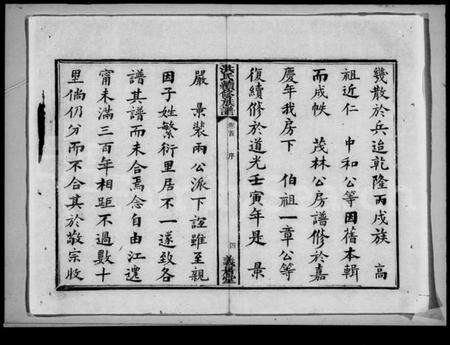 幾散於兵迨乾隆丙戌族　高
祖近仁　中和公等因舊本輯
而成帙　茂林公房譜修於嘉
慶年我房下　伯祖一章公等
復續修於道光壬寅年是　景
氏續修族譜
卷首　序
四　義
嚴　景裝兩公派下誼雖至親
因子姓繁衍里居不一遂致各
譜其譜而未合焉念自由江遷
甯未滿三百年相距不過數十
里倘仍分而不合其於敬宗收